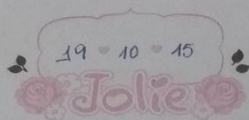 19 10 15
Jolie